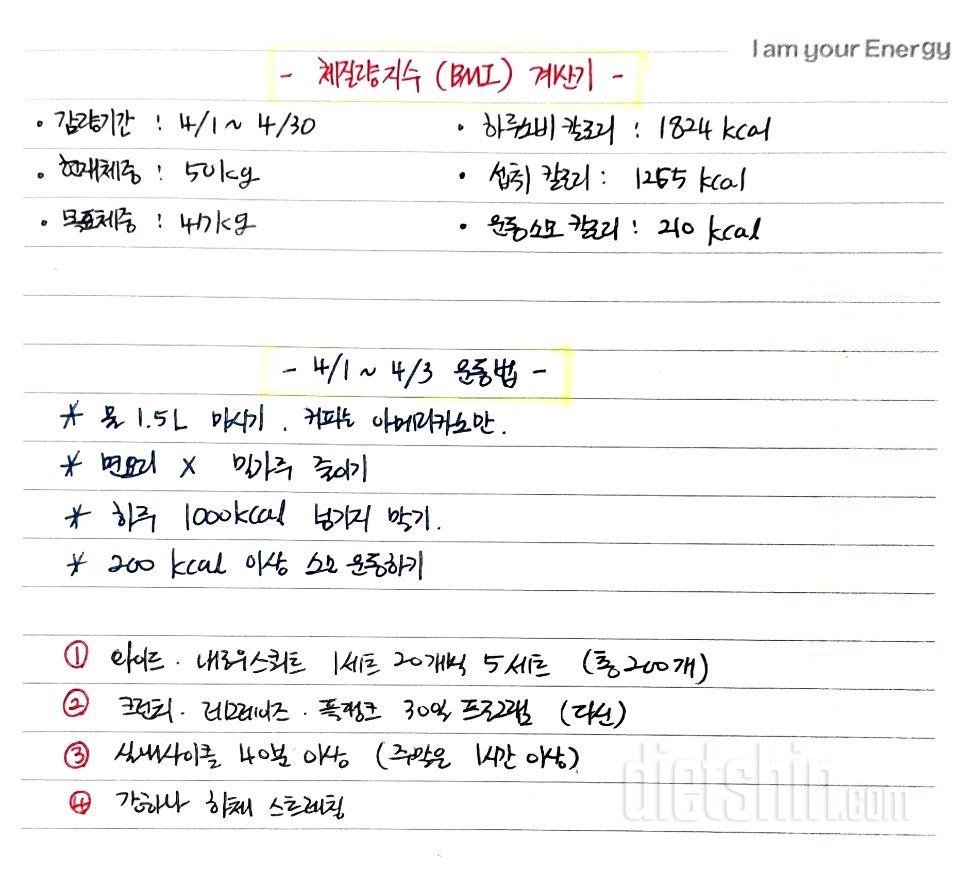 I am your Energy
- 체질량지수 (BMI) 계산기 -
• 감량기간 : 4/1 ~ 4/30
• 하루소비 칼로리 : 1824 kcal
• 현재체중 : 50kg
• 섭취 칼로리 : 1265 kcal
• 목표체중 : 47kg
• 운동소모 칼로리 : 210 kcal
- 4/1 ~ 4/3 운동법 -
* 물 1.5L 마시기. 커피는 아메리카노만.
* 면요리 X 밀가루 줄이기
* 하루 1000kcal 넘기지 말기.
* 200 kcal 이상 소모 운동하기
① 와이드 · 내로우스쿼트 1세트 20개씩 5세트 (총200개)
② 크런치 · 레그레이즈 · 플랭크 30일 프로그램 (다신)
③ 실내사이클 40분 이상 (주말은 1시간 이상)
④ 강하나 하체 스트레칭
dietshin.com